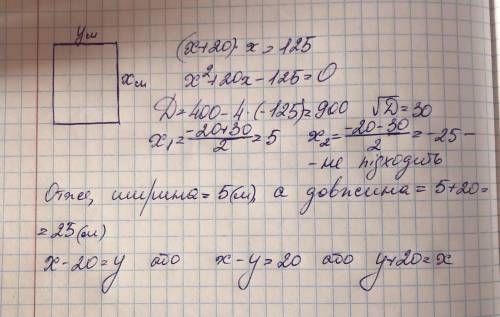 yм
xм
(x+20)·x=125
x²+20x-125=0
D=400-4·(-125)=900 √D=30
x₁=(-20+30)/2=5 x₂=(-20-30)/2=-25-
-не підходить
Отже, ширина=5(м), а довжина=5+20=
=25(м)
x-20=y або x-y=20 або y+20=x